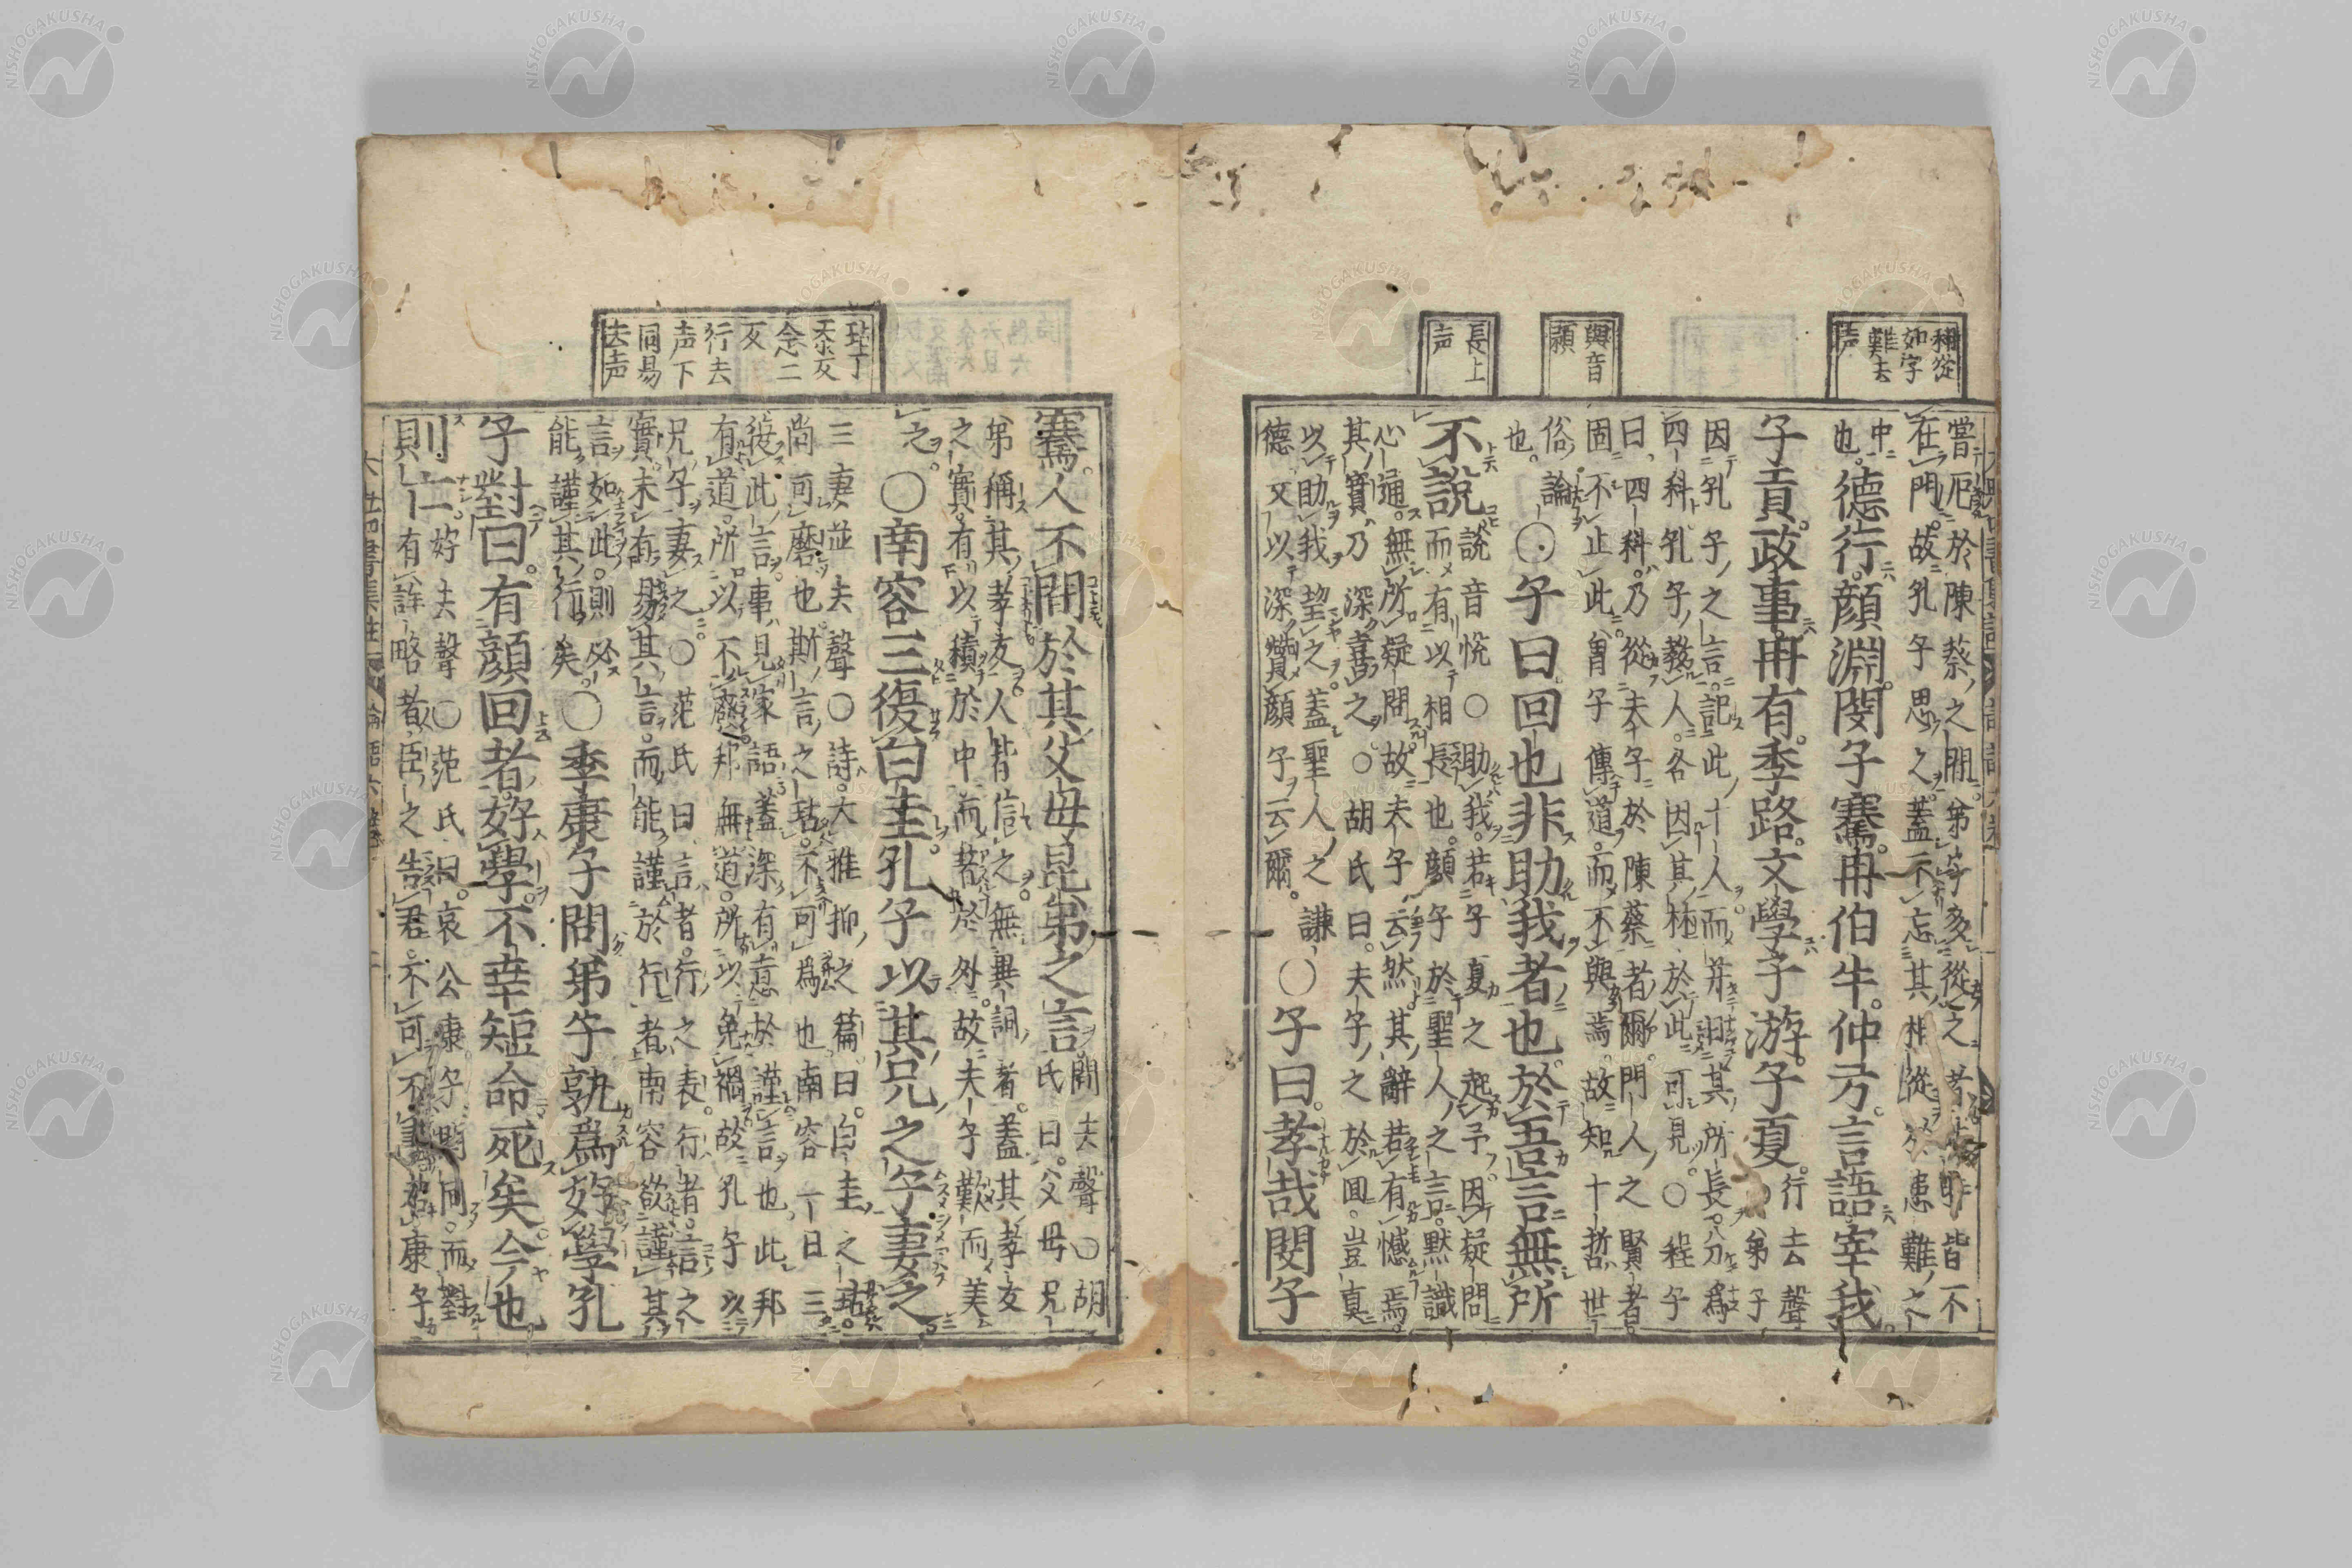 稱從
如字
難去
声
嘗厄於陳蔡之間弟子多從之者此時皆不
在門故孔子思之蓋不忘其相從於患難之
中
也。德行顔淵閔子騫冉伯牛仲弓言語宰我
子貢政事冉有季路文學子游子夏行去聲
○弟子
因孔子之言記此十人而并目其所長分爲
四科孔子教人各因其材於此可見○程子
與音
預
曰四科乃從夫子於陳蔡者爾門人之賢者
固不止此曾子傳道而不與焉故知十哲世
俗論
也。○子曰回也非助我者也於吾言無所
長上
声
不說說音悅○助我若子夏之起予因疑問
而有以相長也顔子於聖人之言默識
心通無所疑問故夫子云然其辭若有憾焉
其實乃深喜之○胡氏曰夫子之於回豈真
以助我望之蓋聖人之謙
德又以深贊顔子云爾。○子曰孝哉閔子
騫人不間於其父母昆弟之言間去聲○胡
氏曰父母兄
弟稱其孝友人皆信之無異詞者蓋其孝友
之實有以積於中而著於外故夫子歎而美
之。○南容三復白圭孔子以其兄之子妻之
玷丁
忝反
念二
反
行去
声下
同易
去声
三妻並去聲○詩大雅抑之篇曰白圭之玷
尚可磨也斯言之玷不可爲也南容一日三
復此言事見家語蓋深有意於謹言也此邦
有道所以不廢邦無道所以免禍故孔子以
兄子妻之○范氏曰言者行之表行者言之
實未有易其言而能謹於行者南容欲謹其
言如此則必
能謹其行矣○季康子問弟子孰爲好學孔
子對曰有顔回者好學不幸短命死矣今也
則亡好去聲○范氏曰哀公康子問同而對
有詳略者臣之告君不可不盡若康子